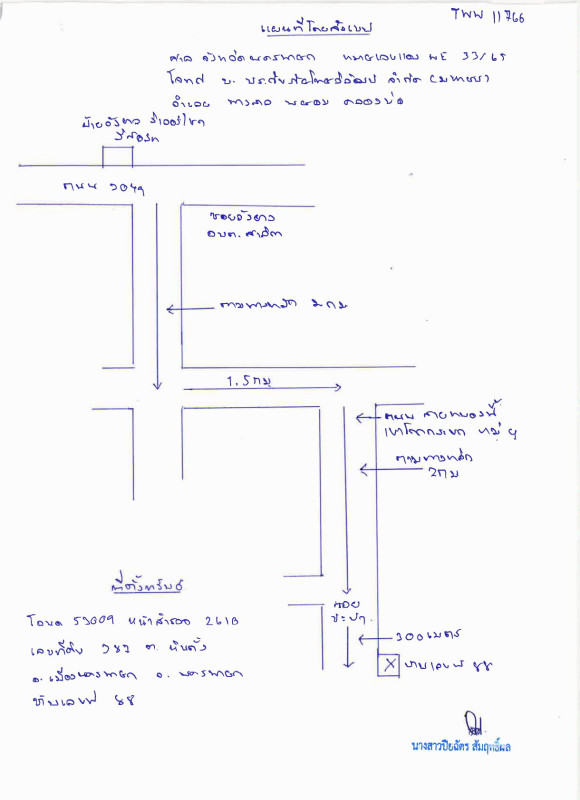 TWW 11766
แผนที่โดยสังเขป
ศาล จังหวัดนครนายก หมายเลขแดง ผE 33/65
โจทก์ บ. จำกัด (มหาชน)
จำเลย
ป้ายวังยาว
รีสอร์ท
ถนน 3049
ซอยวังยาว
อบต. สาริกา
ตามทางหลัก 2 กม
1.5 กม
ถนน สายหนองขี้
เขาโคกกระบก หมู่ 4
ตามทางหลัก
2 กม
ซอย
ประปา
300 เมตร
บ้านเลขที่ 88
ที่ตั้งทรัพย์
โฉนด 53009 หน้าสำรวจ 2610
เลขที่ดิน 383 ต. หินตั้ง
อ. เมืองนครนายก จ. นครนายก
บ้านเลขที่ 88
นางสาวปิยฉัตร สัมฤทธิ์ผล